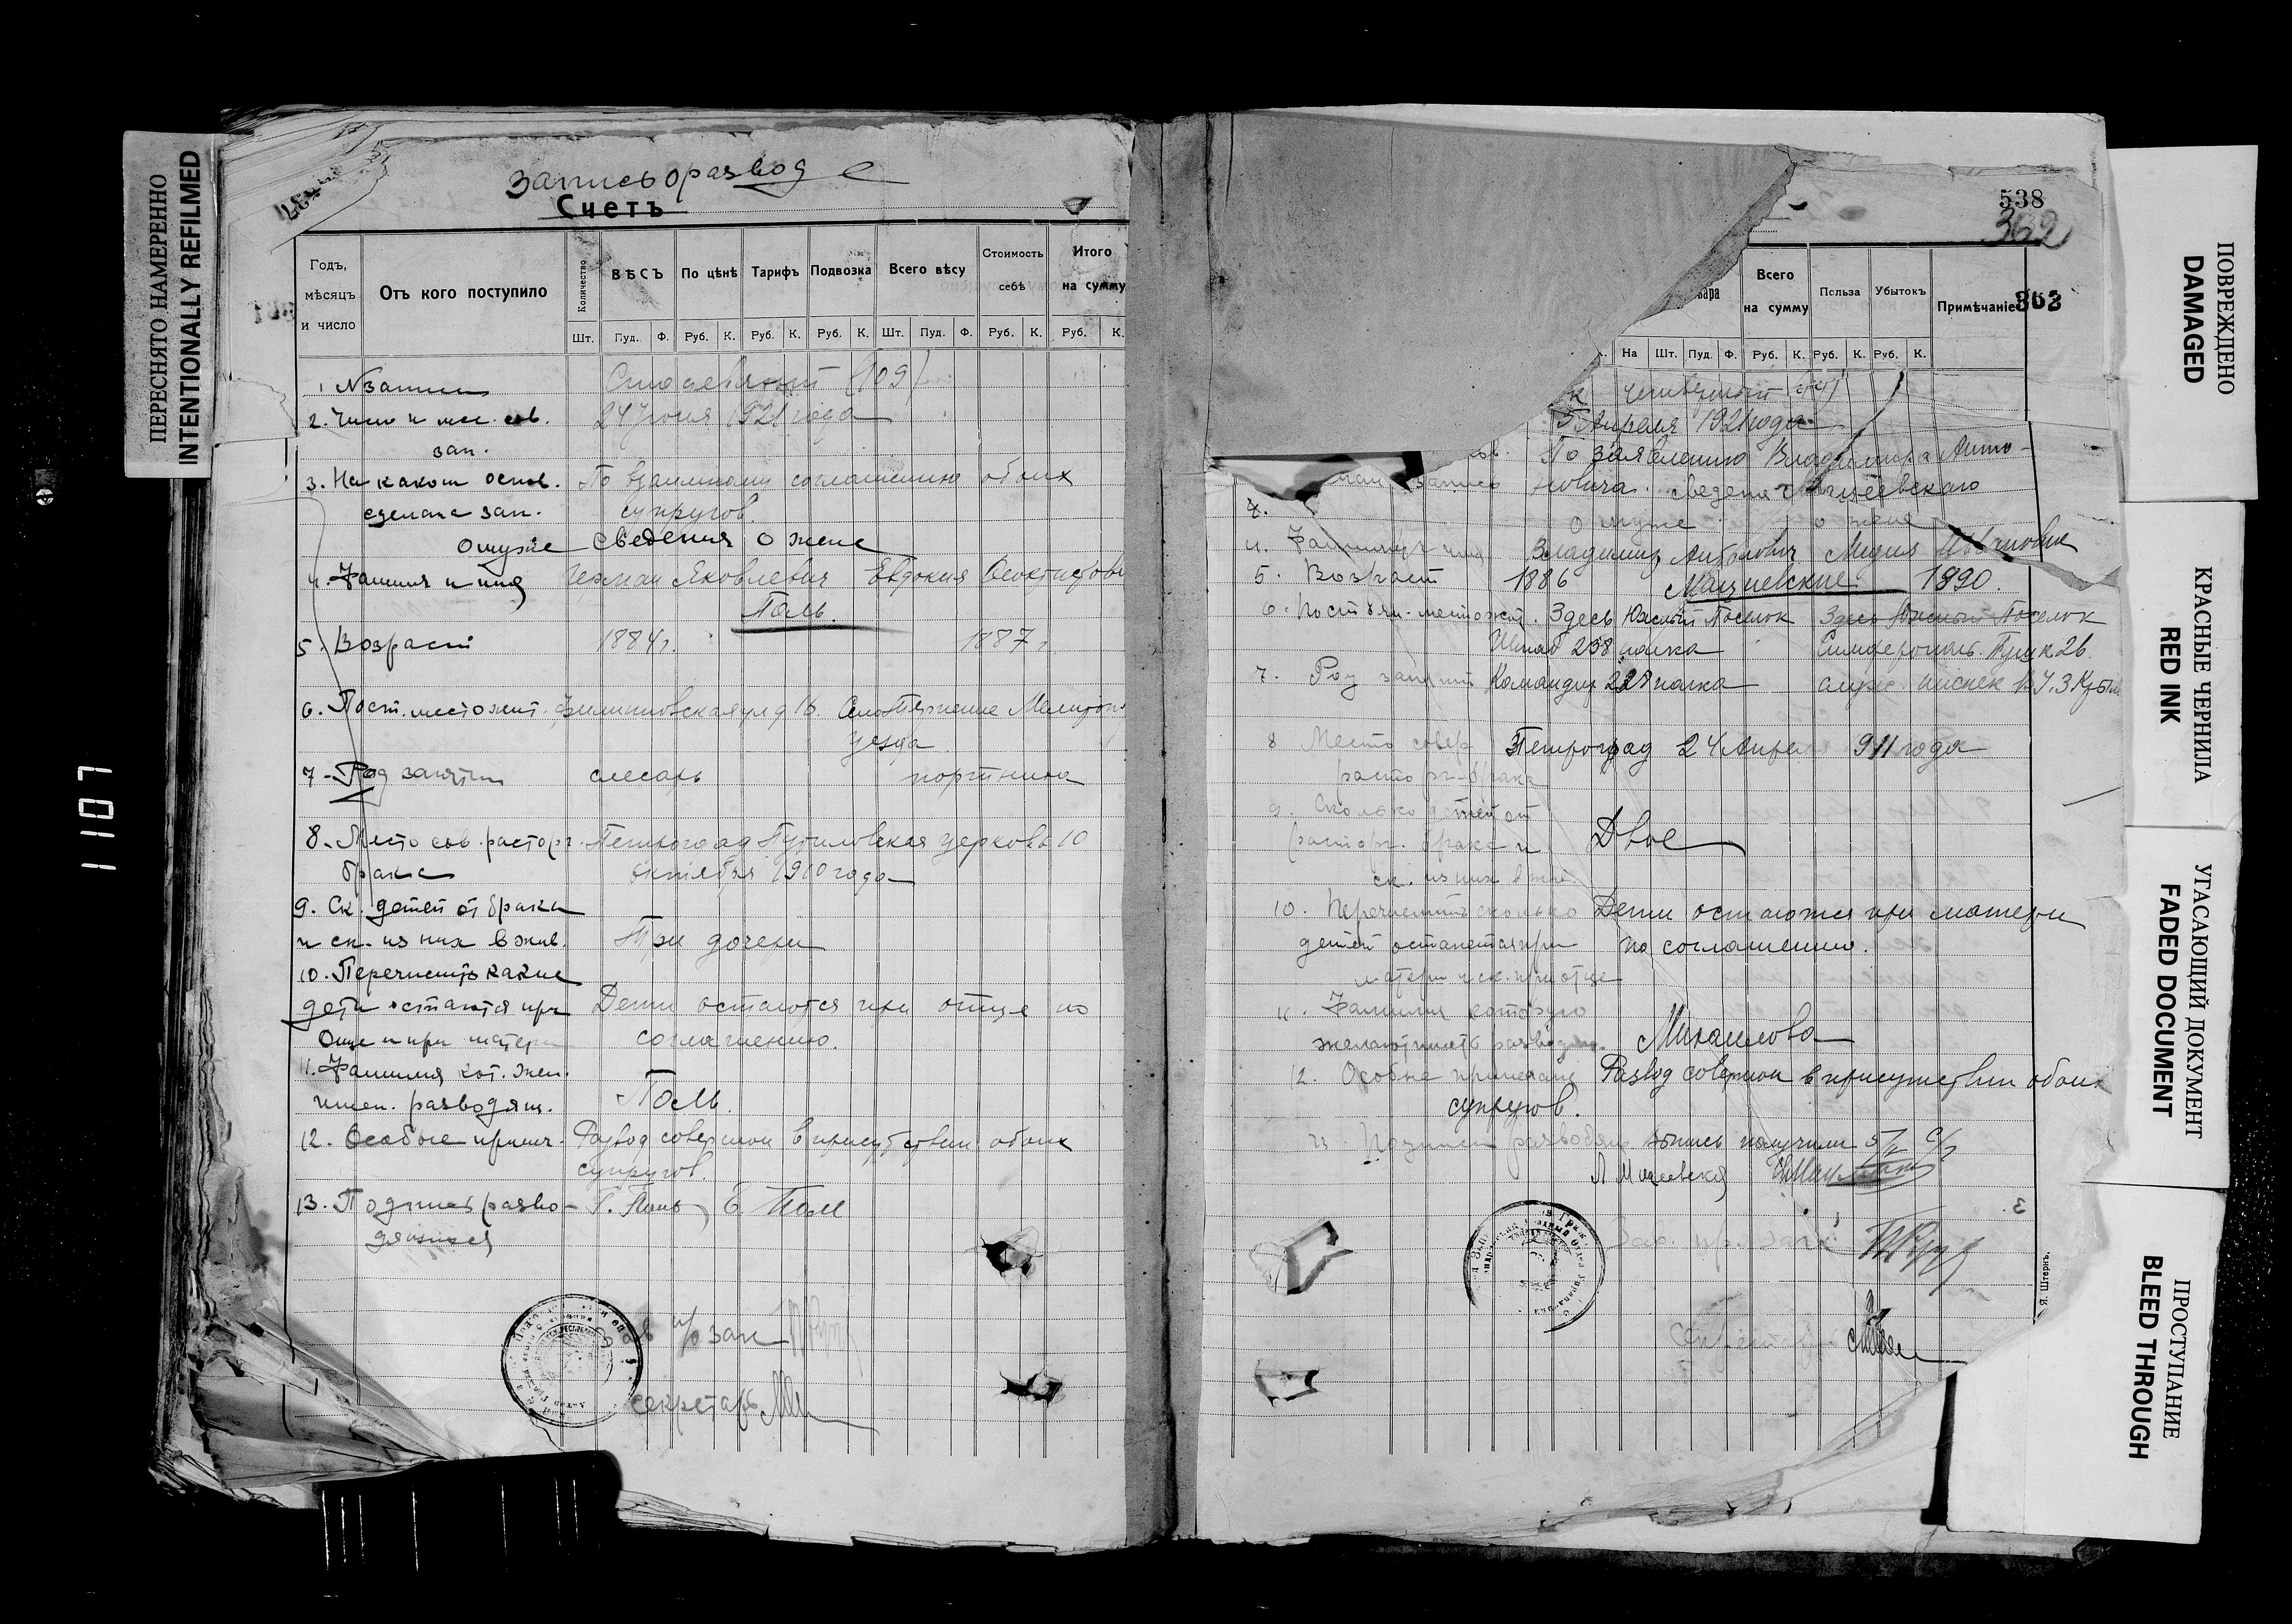 ПЕРЕСНЯТО НАМЕРЕННО
INTENTIONALLY REFILMED
1107
Запись о разводе
Счетъ
Годъ, мѣсяцъ и число
Отъ кого поступило
Количество
ВѢСЪ
По цѣнѣ
Тарифъ
Подвозка
Всего вѣсу
Стоимость себѣ
Итого на сумму
Шт. Пуд. Ф. Руб. К. Руб. К. Руб. К. Шт. Пуд. Ф. Руб. К. Руб. К.
1 № записи
Сто девятый (109)
2. Число и мес. сов. зап.
24 Июня 1921 года
3. На каком основ. сделана зап.
По взаимному соглашению обоих
супругов.
О муже Сведения О жене
4. Фамилия и имя
Герман Яковлевич Евдокия Феоктистовн
Поль.
5. Возраст
1884 г. 1887 г.
6. Пост. место жит.
16. Село Терпение Мелитоп
уезда
7 - Род занятии
слесарь портниха
8. Место сов. расторг. брака
Петроград Путиловская церковь 10
октября 1910 года
9. Ск. детей от брака
и ск. из них в жив.
Три дочери
10. Перечислить какие
дети остаются при
Отце и при матери
Дети остаются при отце по
соглашению.
11. Фамилия кот. жел.
имен. разводящ.
Поль.
12. Особые примеч.
Развод совершон в присутствии обоих
супругов.
13. Подпись разво-
дящихся
Г. Поль, Е. Поль
секретарь
538
362
363
вара
Всего на сумму
Польза
Убытокъ
Примѣчаніе
На Шт. Пуд. Ф. Руб. К. Руб. К. Руб. К.
5 Апреля 1921 года
По заявлению Владимира Анто-
новича
О муже о жене
4. Фамилия и имя
Владимир Антонович Лидия Ивановна
Мациевские
5. Возраст
1886 1890.
6. Постоян. местожит.
Здесь Южный Поселок
Здесь Южный Поселок
Штаб 258 полка
7. Род занятий
Командир полка
8 Место совер. расторг. брака
Петроград 24 Апреля 911 года
9. Сколько детей от
расторг. брака и
ск. из них в жив.
Двое
10. Перечислить сколько
детей останется при
матери и ск. при отце
Дети остаются при матери
по соглашению.
11. Фамилия которую
желают иметь разводящ.
Михаилова
12. Особые примечан.
Развод совершон в присутствии обоих
супругов.
Л Мациевская
Секретарь
ПОВРЕЖДЕНО
DAMAGED
КРАСНЫЕ ЧЕРНИЛА
RED INK
УГАСАЮЩИЙ ДОКУМЕНТ
FADED DOCUMENT
ПРОСТУПАНИЕ
BLEED THROUGH